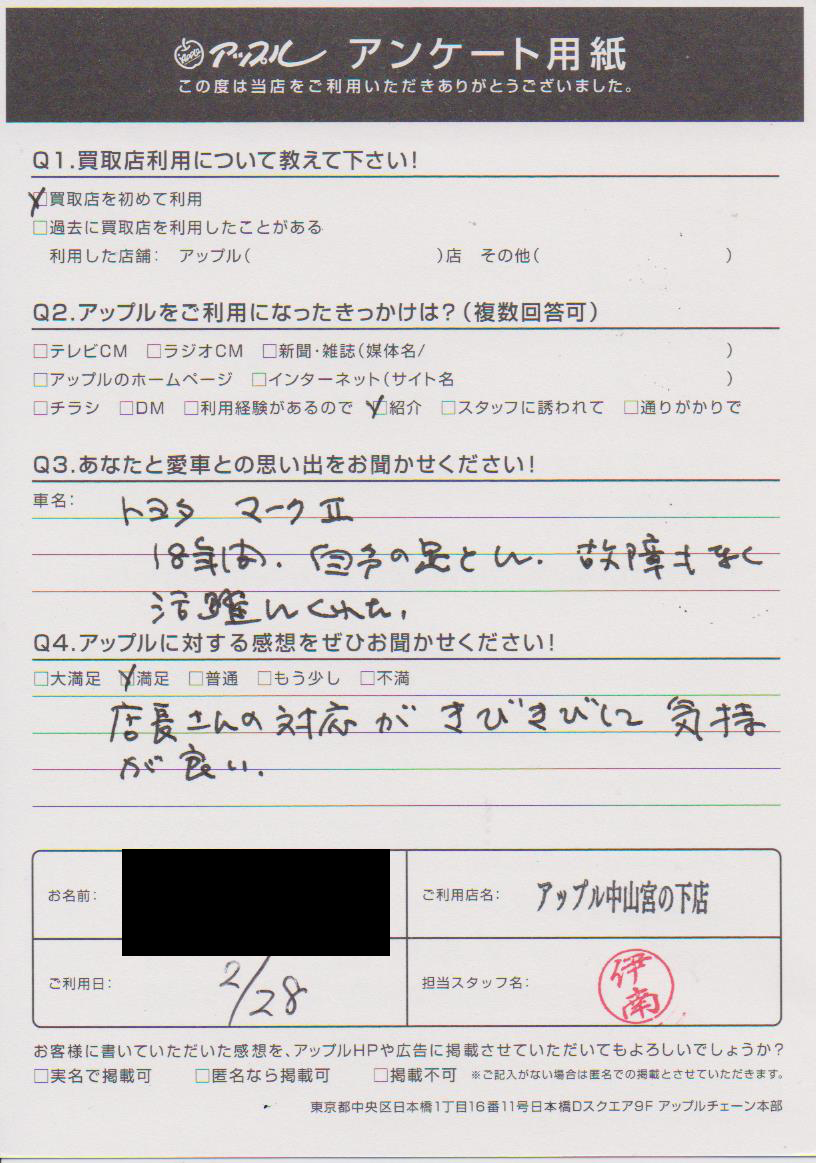 アップル アンケート用紙
この度は当店をご利用いただきありがとうございました。
Q1.買取店利用について教えて下さい!
□買取店を初めて利用
□過去に買取店を利用したことがある
利用した店舗: アップル( )店 その他( )
Q2.アップルをご利用になったきっかけは?(複数回答可)
□テレビCM □ラジオCM □新聞・雑誌(媒体名/ )
□アップルのホームページ □インターネット(サイト名 )
□チラシ □DM □利用経験があるので □紹介 □スタッフに誘われて □通りがかりで
Q3.あなたと愛車との思い出をお聞かせください!
車名: トヨタ マークⅡ
18年間、自分の足とし、故障もなく
活躍してくれた。
Q4.アップルに対する感想をぜひお聞かせください!
□大満足 □満足 □普通 □もう少し □不満
店長さんの対応が きびきびして 気持
が良い。
お名前:
ご利用店名: アップル中山宮の下店
ご利用日: 2/28
担当スタッフ名: 伊南
お客様に書いていただいた感想を、アップルHPや広告に掲載させていただいてもよろしいでしょうか?
□実名で掲載可 □匿名なら掲載可 □掲載不可 ※ご記入がない場合は匿名での掲載とさせていただきます。
東京都中央区日本橋1丁目16番11号日本橋Dスクエア9F アップルチェーン本部